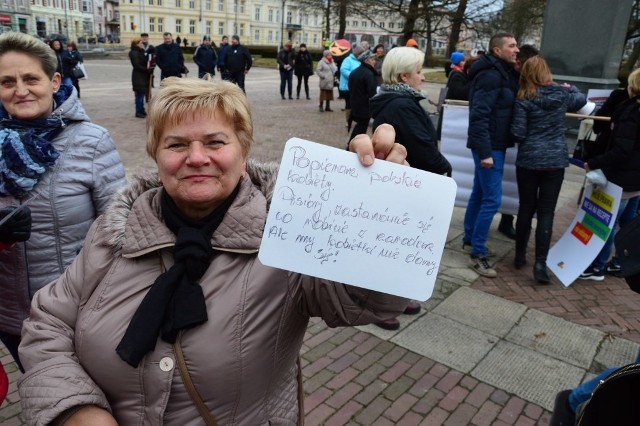 Popieram polskie
kobiety.
Pisiory, zastanówcie się
co robicie z narodem
Ale my kobietki nie damy
się!